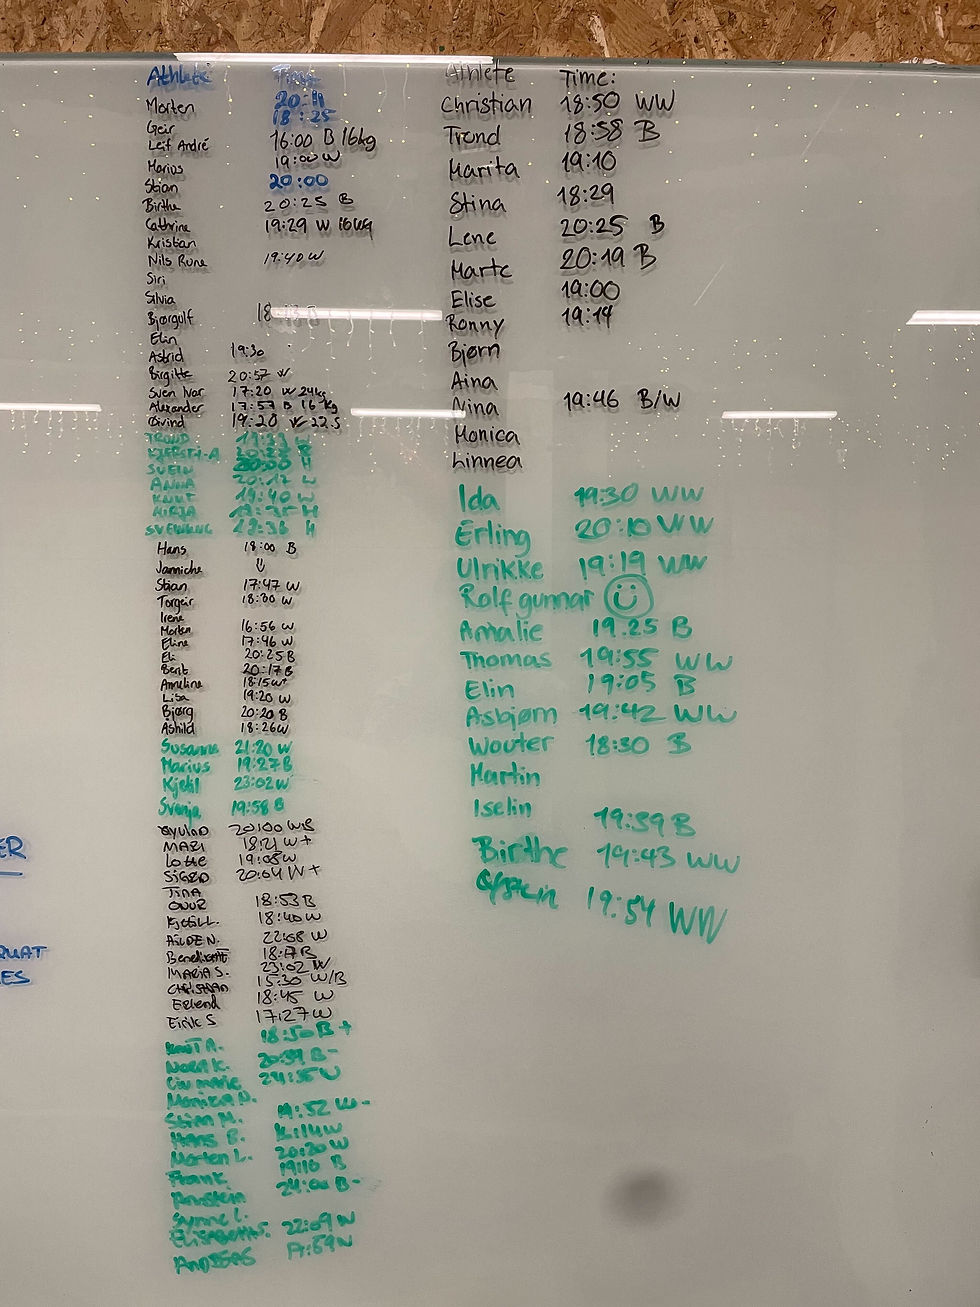 Athlete Time
Morten 20:11
18:25
Geir
Leif André 16:00 B 16kg
Marius 19:00 W
Stian 20:00
Birthe 20:25 B
Cathrine 19:29 W 16kg
Kristian
Nils Rune 19:40 W
Siri
Silvia
Bjørgulf 18
Elin
Astrid 19:30
Birgitte 20:57 W
Sven Ivar 17:20 W 24kg
Alexander 17:57 B 16kg
Øivind 19:20 W 22.5
TROND 19:33 W
KJERSTI-A B
SVEIN 20:00 H
ANNA 20:12 W
KNUT 19:40 W
MIRJA 19:35 H
H
Hans 18:00 B
Janniche
Stian 17:47 W
Torgeir 18:00 W
Irene
Morten 16:56 W
Eline 17:46 W
Eli 20:25 B
Berit 20:17 B
Anneline 18:15 W+
Lisa 19:20 W
Bjørg 20:20 B
Åshild 18:26 W
Susanne 21:20 W
Marius 19:27 B
Kjetil 23:02 W
Svenja 19:58 B
20:00 WB
MARI 18:21 W+
Lotte 19:08 W
SIGRID 20:04 W+
TINA
ONUR 18:53 B
Kjetil L. 18:40 W
N. W
Benedicte B
MARIA S. 23:02 W
CHRISTIAN 15:30 W/B
Erlend 18:45 W
Eirik S 17:27 W
Knut A. 18:50 B+
Nora K. 20:39 B-
Liv Marie 24:35 W
Monica N.
Stian M. 19:52 W-
Hans B.
Morten L. 20:20 W
Frank 19:10 B
24:00 B-
Synne L.
22:09 W
Andreas 17:59 W
Athlete Time:
Christian 18:50 WW
Trond 18:58 B
Marita 19:10
Stina 18:29
Lene 20:25 B
Marte 20:19 B
Elise 19:00
Ronny 19:14
Bjørn
Aina
Nina 19:46 B/W
Monica
Linnea
Ida 19:30 WW
Erling 20:10 WW
Ulrikke 19:19 WW
Rolf gunnar
Amalie 19.25 B
Thomas 19:55 WW
Elin 19:05 B
Asbjørn 19:42 WW
Wouter 18:30 B
Martin
Iselin 19:39 B
Birthe 19:43 WW
Øystein 19:54 WW
ER
QUAT
ES